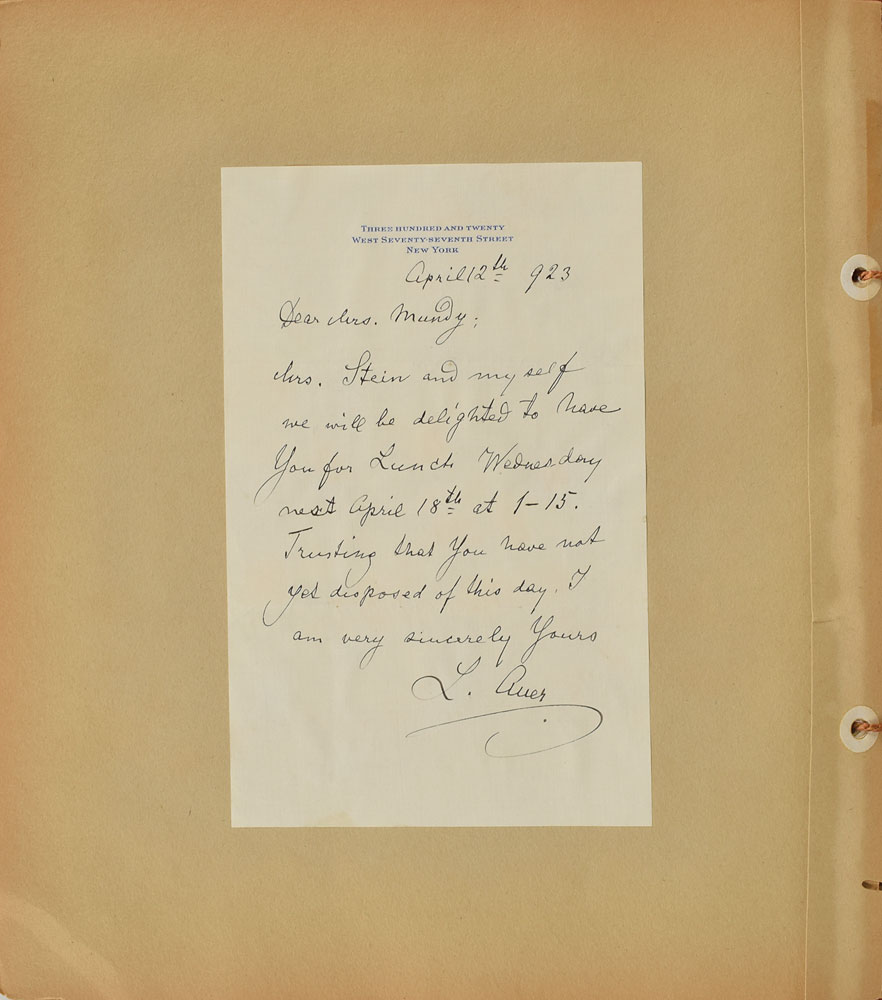 THREE HUNDRED AND TWENTY
WEST SEVENTY-SEVENTH STREET
NEW YORK
April 12th 923
Dear Mrs. Mundy;
Mrs. Stein and my self
we will be delighted to have
You for Lunch Wednesday
next April 18th at 1-15.
Trusting that You have not
yet disposed of this day. I
am very sincerely Yours
L. Auer